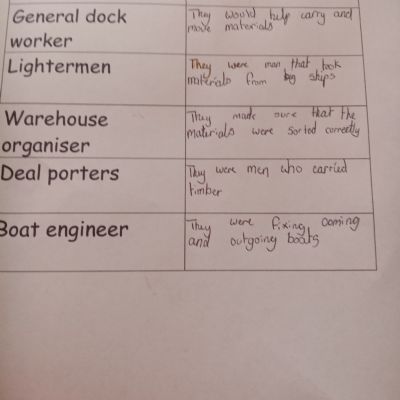 General dock
worker
They would help carry and
move materials
Lightermen
They were men that took
materials from big ships
Warehouse
organiser
They made sure that the
materials were sorted correctly
Deal porters
They were men who carried
timber
Boat engineer
They were fixing coming
and outgoing boats